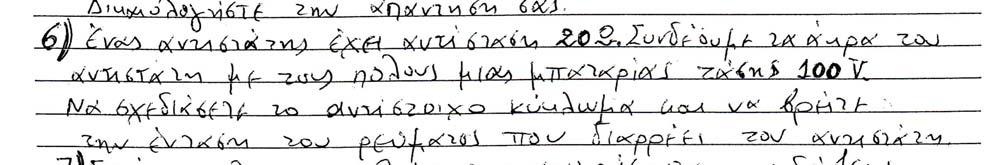 Δικαιολογήστε την απάντησή σας.
6) Ένας αντιστάτης έχει αντίσταση 20Ω. Συνδέουμε τα άκρα του
αντιστάτη με τους πόλους μιας μπαταρίας τάσης 100 V.
Να σχεδιάσετε το αντίστοιχο κύκλωμα και να βρείτε
την ένταση του ρεύματος που διαρρέει τον αντιστάτη.